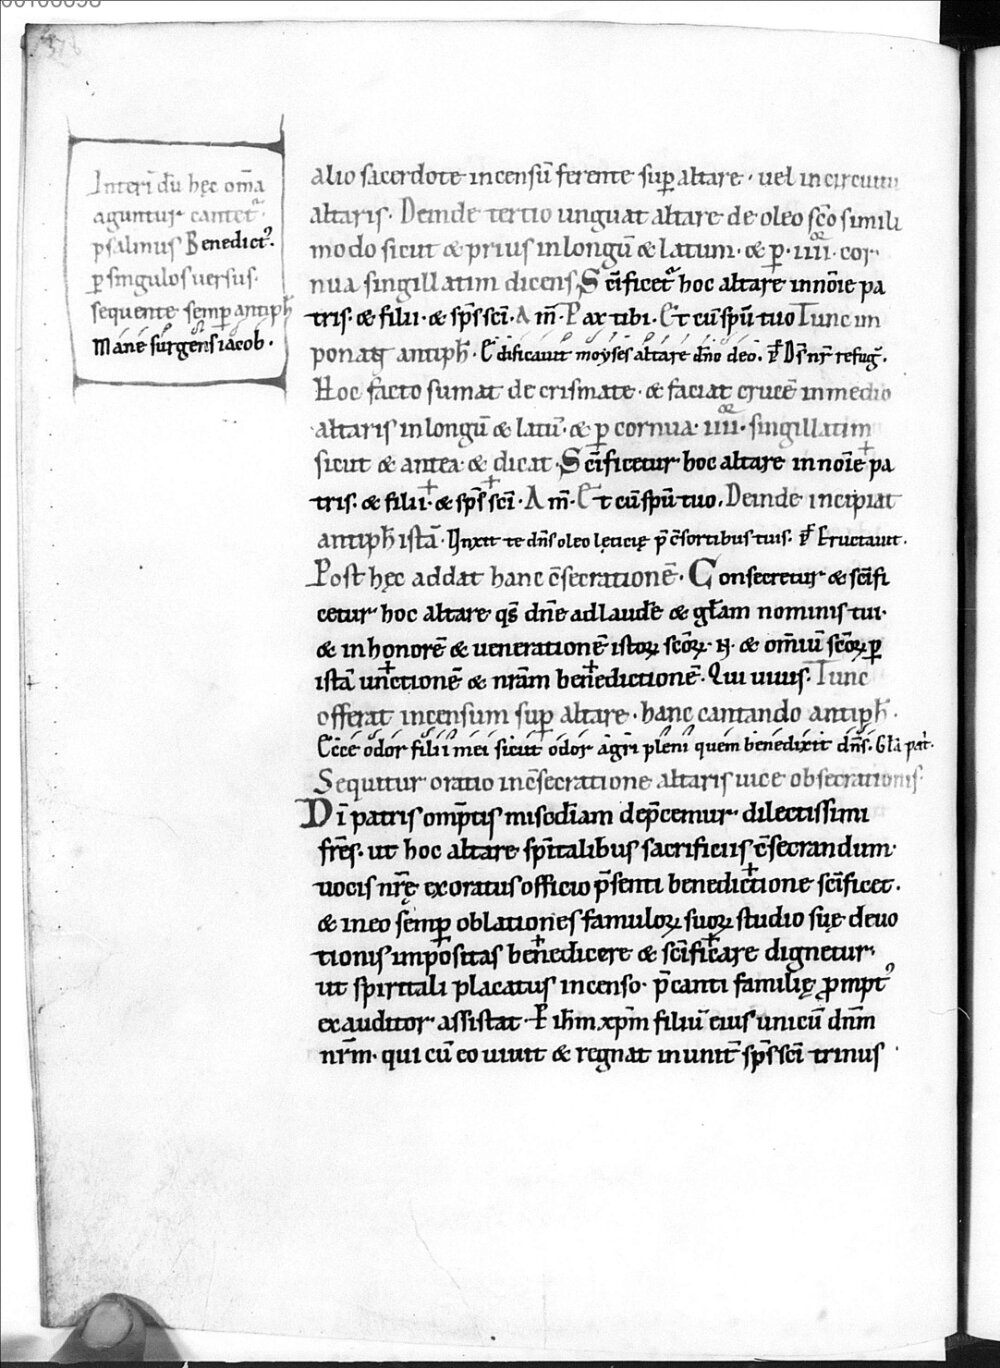 Interī dū hęc om̄a
aguntur cantet̄.
psalmus Benedict᾽.
ꝑ singulos uersus.
sequente semꝑ antiph̄
Mane surgens iacob.
alio sacerdote incensū ferente suꝑ altare. uel in circuitu
altaris. Deinde tertio unguat altare de oleo sc̄o simili
modo sicut & prius in longū & latum. & ꝑ. iiii. cor
nua singillatim dicens, Sc̄ificet᷑ hoc altare in nōie pa
tris. & filii. & sp̄s sc̄i. Am̄. Pax tibi. Et cū sp̄u tuo Tunc im
ponat antiph̄. Edificauit moyses altare dn̄o deo. Ps̄ Ds̄ nr̄ refuḡ.
Hoc facto sumat de crismate. & faciat crucē in medio
altaris in longū & latū. & ꝑ cornua. iiii. singillatim
sicut & antea. & dicat. Sc̄ificetur hoc altare in nōie pa
tris. & filii. & sp̄s sc̄i. Am̄. Et cū sp̄u tuo. Deinde incipiat
antiph̄ istā. Vnxit te dn̄s oleo lęticię p̄ c̄sortibus tuis. Ps̄ Eructauit.
Post hęc addat hanc c̄secrationē. Consecretur & sc̄ifi
cetur hoc altare qs̄ dn̄e ad laudē & gl̄am nominis tui.
& in honorē & uenerationē istoꝝ sc̄oꝝ. N. & om̄iū sc̄oꝝ ꝑ
istā unctionē & nr̄am benedictionē. Qui uiuis. Tunc
offerat incensum suꝑ altare. hanc cantando antiph̄.
Ecce odor filii mei sicut odor agri pleni quem benedixit dn̄s. Gl̄a pat̄.
Sequitur oratio in c̄secratione altaris uice obsecrationis.
Dī patris omp̄tis misc̄diam dep̄cemur dilectissimi
fr̄es. ut hoc altare sp̄italibus sacrificiis c̄secrandum.
uocis nr̄ę exoratus officio p̄senti benedictione sc̄ificet.
& in eo semꝑ oblationes famuloꝝ suoꝝ studio suę deuo
tionis impositas benedicere & sc̄ificare dignetur.
ut spiritali placatus incenso. p̄canti familię ꝓmpt᾽
exauditor assistat. P ih̄m xp̄m filiū eius unicū dn̄m
nr̄m. qui cū eo uiuit & regnat in unit̄ sp̄s sc̄i trinus